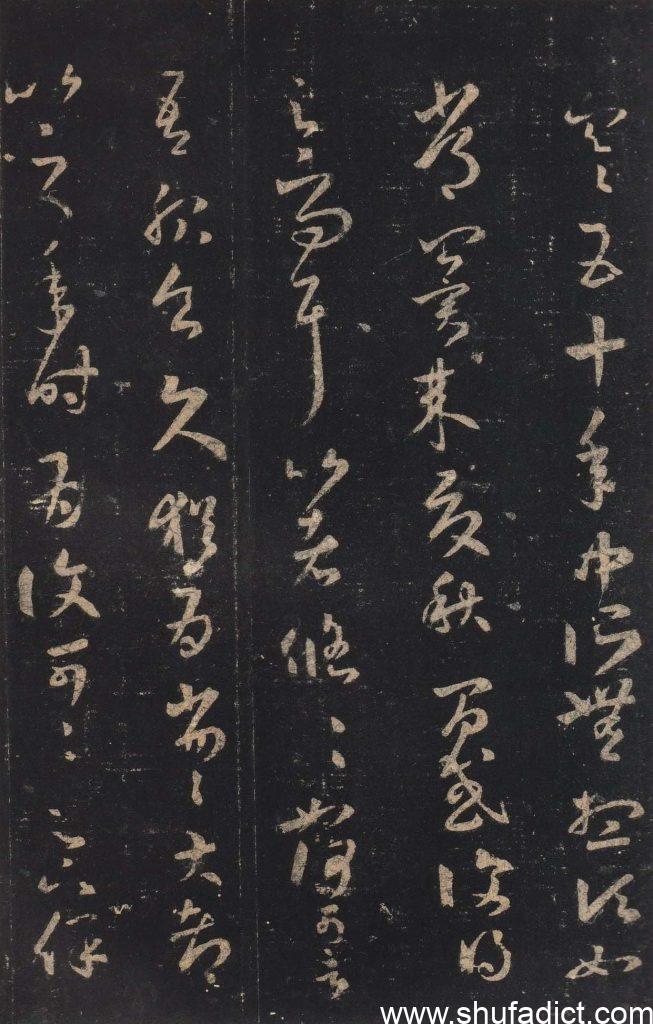 寒五十年中所無想頃如
常冀來夏秋間或復得
足下問耳比者悠悠如何可言
吾服食久猶為劣劣大都
比之年時為復可可足下保
www.shufadict.com